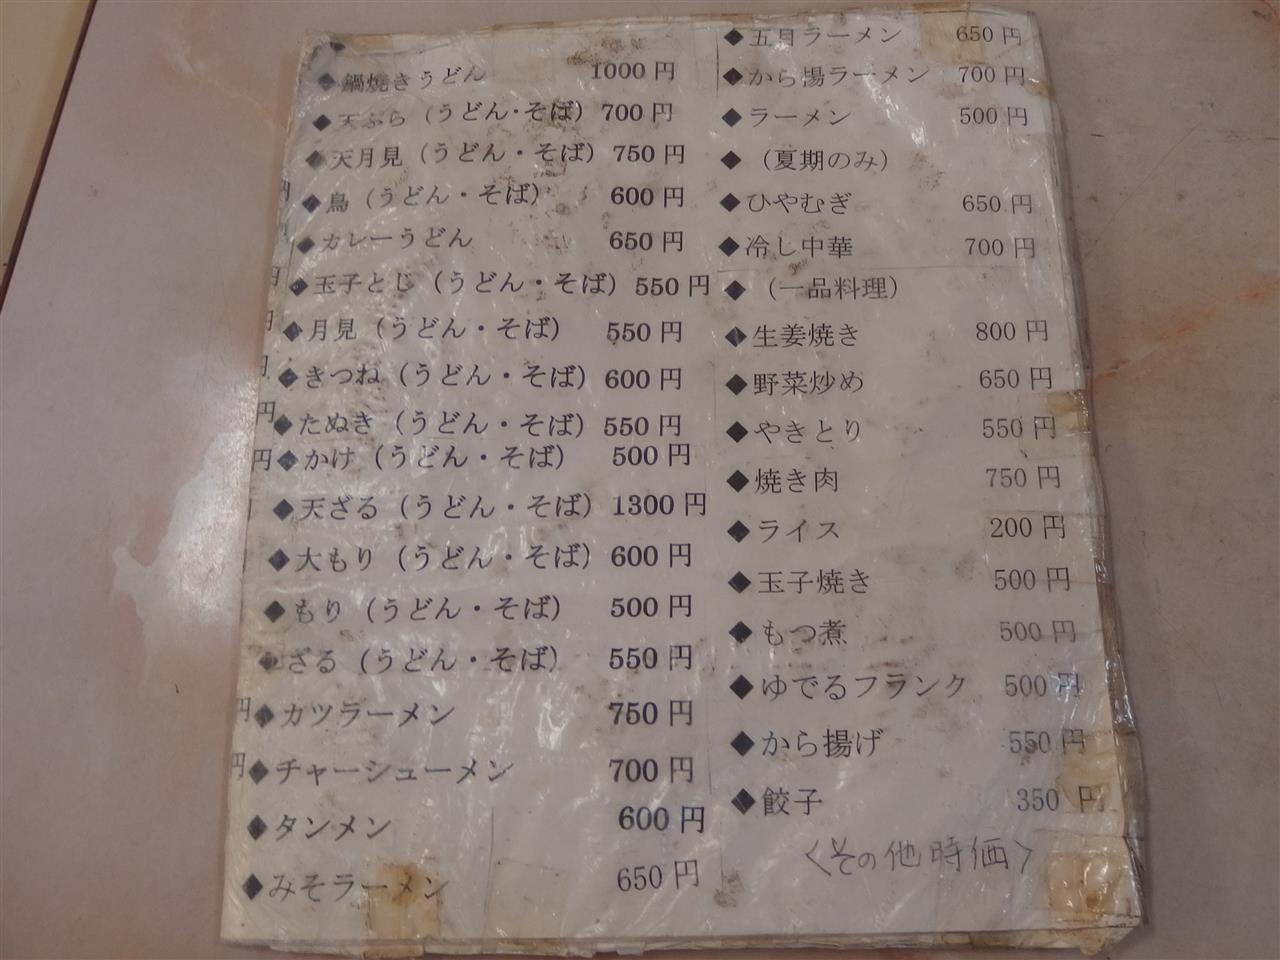 ◆鍋焼きうどん 1000円
◆天ぷら（うどん・そば）700円
◆天月見（うどん・そば）750円
◆鳥（うどん・そば） 600円
◆カレーうどん 650円
◆玉子とじ（うどん・そば）550円
◆月見（うどん・そば） 550円
◆きつね（うどん・そば）600円
◆たぬき（うどん・そば）550円
◆かけ（うどん・そば） 500円
◆天ざる（うどん・そば）1300円
◆大もり（うどん・そば）600円
◆もり（うどん・そば） 500円
◆ざる（うどん・そば） 550円
◆カツラーメン 750円
◆チャーシューメン 700円
◆タンメン 600円
◆みそラーメン 650円
◆五目ラーメン 650円
◆から揚ラーメン 700円
◆ラーメン 500円
◆（夏期のみ）
◆ひやむぎ 650円
◆冷し中華 700円
◆（一品料理）
◆生姜焼き 800円
◆野菜炒め 650円
◆やきとり 550円
◆焼き肉 750円
◆ライス 200円
◆玉子焼き 500円
◆もつ煮 500円
◆ゆでるフランク 500円
◆から揚げ 550円
◆餃子 350円
〈その他時価〉